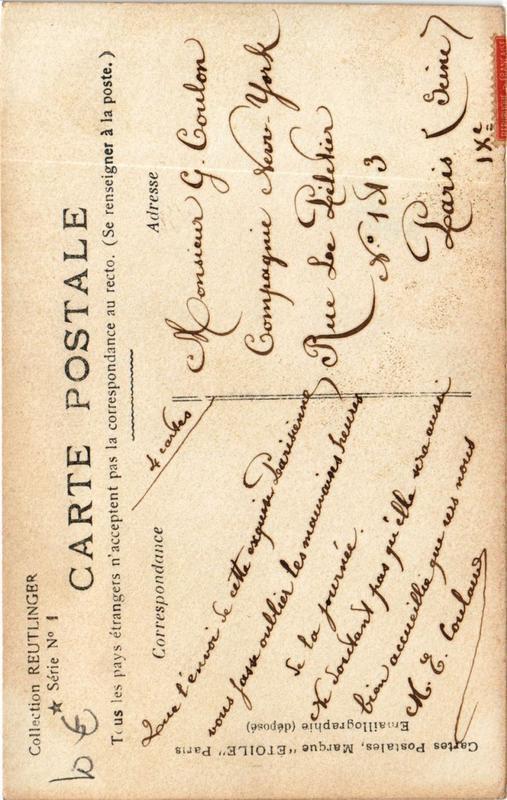 Collection REUTLINGER
★ Série Nº 1
CARTE POSTALE
Tous les pays étrangers n'acceptent pas la correspondance au recto. (Se renseigner à la poste.)
Correspondance
4 cartes
Que l'envoi de cette exquise Parisienne
vous fasse oublier les mauvaises heures
de la journée.
Ne doutant pas qu'elle sera aussi
bien accueillie que ses
M. E.
Adresse
Monsieur G. Coulon
Compagnie New-York
Rue Le Peletier
Nº 1 et 3
Paris (Seine)
IXe
Cartes Postales, Marque "ETOILE" Paris
Emaillographie (déposé)
REPUBLIQUE FRANÇAISE